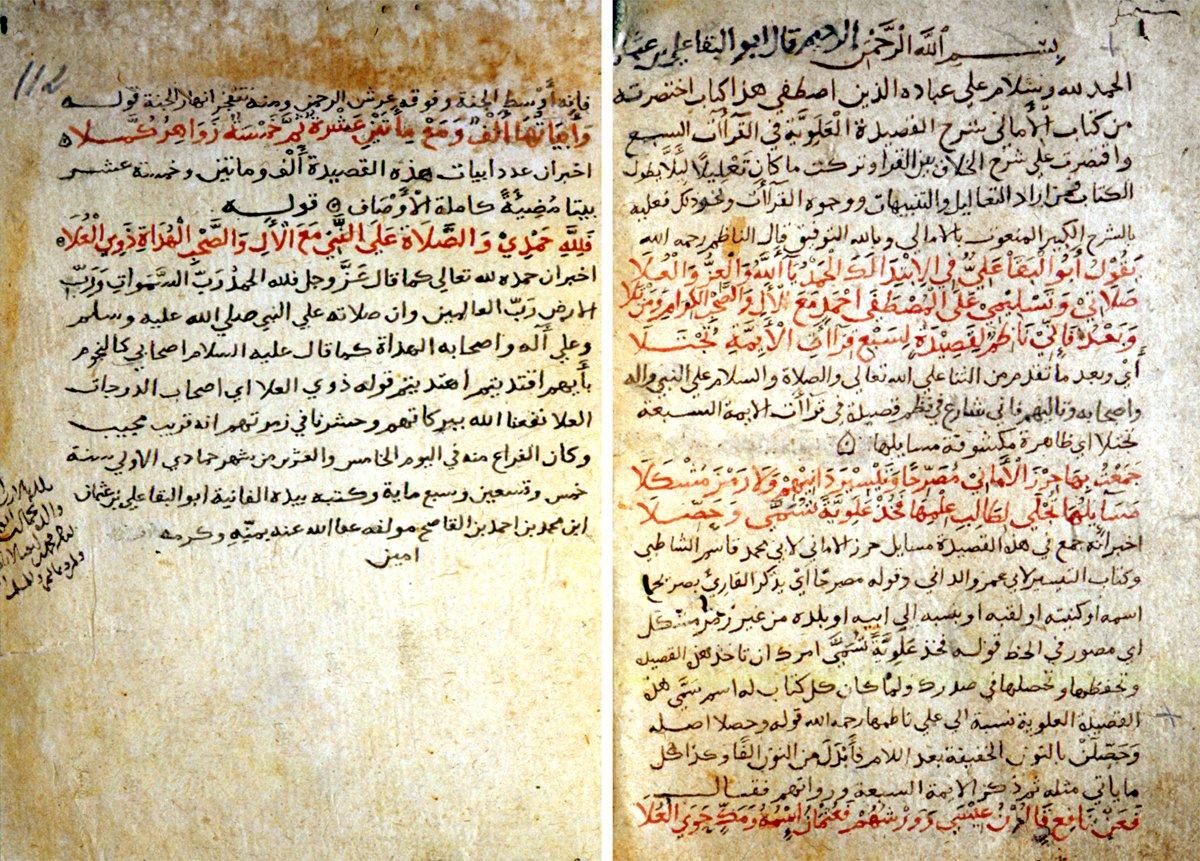 بسم الله الرحمن الرحيم قال ابو البقا علي بن
الحمد لله وسلام علي عباده الذين اصطفي هذا كتاب اختصرته
من كتاب الأمالي شرح القصيدة العلوية في القراأت السبع
واقتصرت علي شرح الخلاف بين القرا وتركت ما كان تعليلا ليلا يطول
الكتاب فمن اراد التعاليل والتنبيهات ووجوه القراأت ونحو ذلك فعليه
بالشرح الكبير المنعوت بالامالي وبالله التوفيق قال الناظم رحمه الله
يقول أبو البقا علي في الابتدا لك الحمد يا ألله والعز والعلا
صلاتي وتسليمي علي المصطفي احمد مع الأل والصحب الكرام ومن تلا
وبعد فإني ناظم لقصيدة لسبع قراأت الأيمة تجتلا
أي وبعد ما تقدم من الثنا علي الله تعالي والصلاة والسلام علي النبي واله
واصحابه وتاليهم فاني شارع في نظم قصيدة في قراأت الايمة السبعة
تجتلا اي ظاهرة مكشوفة مسايلها
جمعت بها حرز الأماني مصرحا وتيسير دانيهم ولا رمز مشكلا
مسايلها تجلي لطالب علمها فخذ علوية تسمي وحصلا
اخبر انه جمع في هذه القصيدة مسايل حرز الاماني لابي محمد قاسم الشاطبي
وكتاب التيسير لابي عمرو الداني وقوله مصرحا اي يذكر القارئ بصريح
اسمه او كنيته او لقبه او بنسبه الي ابيه او بلده من غير رمز مشكل
اي مصور في الخط قوله فخذ علوية تسمي امرك ان تاخذ هذه القصيدة
وتحفظها وتحصلها في صدرك ولما كان كل كتاب له اسم سمي هذه
القصيدة العلوية نسبة الي علي ناظمها رحمه الله قوله وحصلا اصله
وحصلن بالنون الخفيفة بعد اللام فأبدل من النون الفا وكذا كل
ما ياتي مثله ثم ذكر الايمة السبعة ورواتهم فقال
فعن نافع قالون عيسي وورشهم فعثمان اسمه ومك حوي العلا
112
فانه أوسط الجنة وفوقه عرش الرحمن ومنه تفجر انهار الجنة قوله
وأبياتها ألف ومع مأتين عشرة ثم خمسة زواهر كملا
اخبر ان عدد ابيات هذه القصيدة ألف ومأتين وخمسة عشر
بيتا مضيئة كاملة الأوصاف قوله
فلله حمدي والصلاة علي النبي مع الأل والصحب الهداة ذوي العلا
اخبر ان حمده لله تعالي كما قال عز وجل فلله الحمد رب السموات ورب
الارض رب العالمين وان صلاته علي النبي صلي الله عليه وسلم
وعلي أله واصحابه الهداة كما قال عليه السلام اصحابي كالنجوم
بأيهم اقتديتم اهتديتم قوله ذوي العلا اي اصحاب الدرجات
العلا نفعنا الله ببركاتهم وحشرنا في زمرتهم انه قريب مجيب
وكان الفراغ منه في اليوم الخامس والعشرين من شهر جمادي الاولي سنة
خمس وتسعين وسبع ماية وكتبه بيده الفانية ابو البقا علي بن عثمان
ابن محمد بن احمد بن القاصح مولفه عفا الله عنه بمنه وكرمه
امين